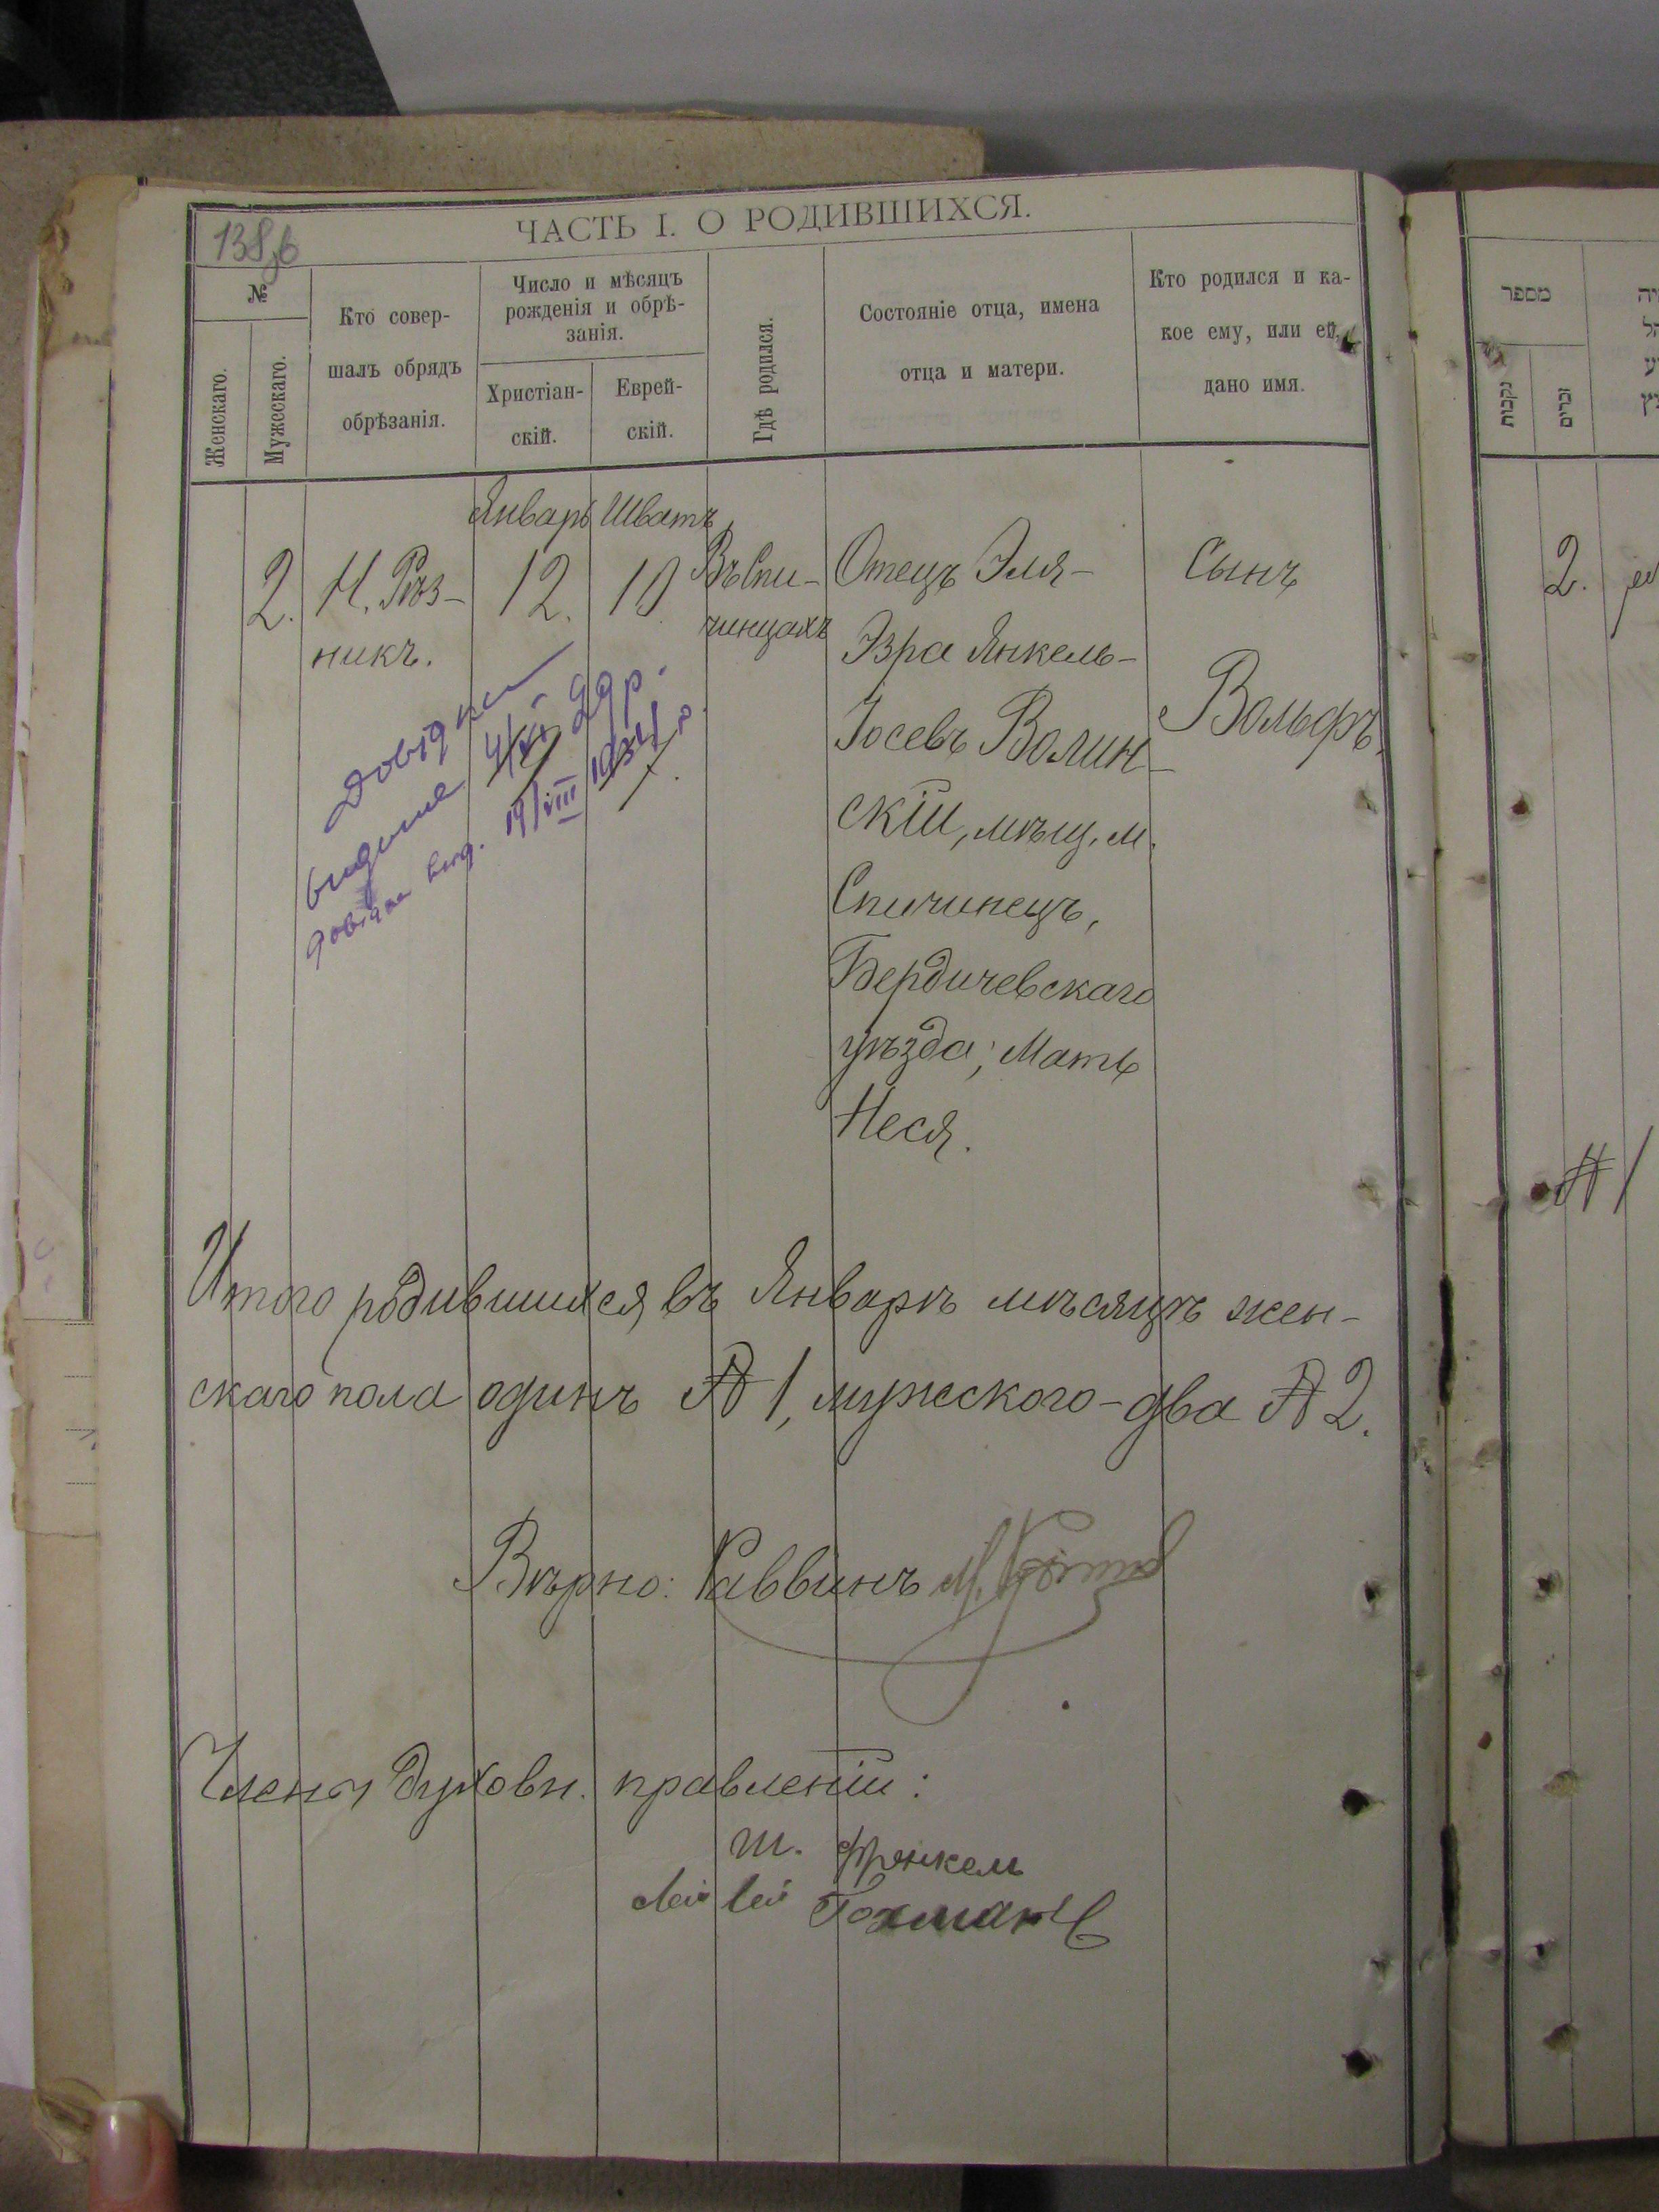 138об
ЧАСТЬ I. О РОДИВШИХСЯ.
№
Женскаго.
Мужескаго.
Кто совер-
шалъ обрядъ
обрѣзанія.
Число и мѣсяцъ
рожденія и обрѣ-
занія.
Христіан-
скій.
Еврей-
скій.
Гдѣ родился.
Состояніе отца, имена
отца и матери.
Кто родился и ка-
кое ему, или ей,
дано имя.
Январь Шватъ
2.
Н. Рѣз-
никъ.
12.
10
Въ Спи-
чинцахъ
Отецъ Эля-
Эзра Янкель-
Іосевъ Волин-
скій, мѣщ. м.
Спичинецъ,
Бердичевскаго
уѣзда; Мать
Неся.
Сынъ
Вольфъ.
Довідки
видине 4/XI 29 р.
довідка вид. 19/VIII 1934 р.
Итого родившихся въ Январѣ мѣсяцѣ жен-
скаго пола одинъ № 1, мужского - два № 2.
Вѣрно: Раввинъ М.
Члены духовн. правленій:
Ш. Френкель
Гохманъ
מספר
נקבות
זכרים
2.
№ 1